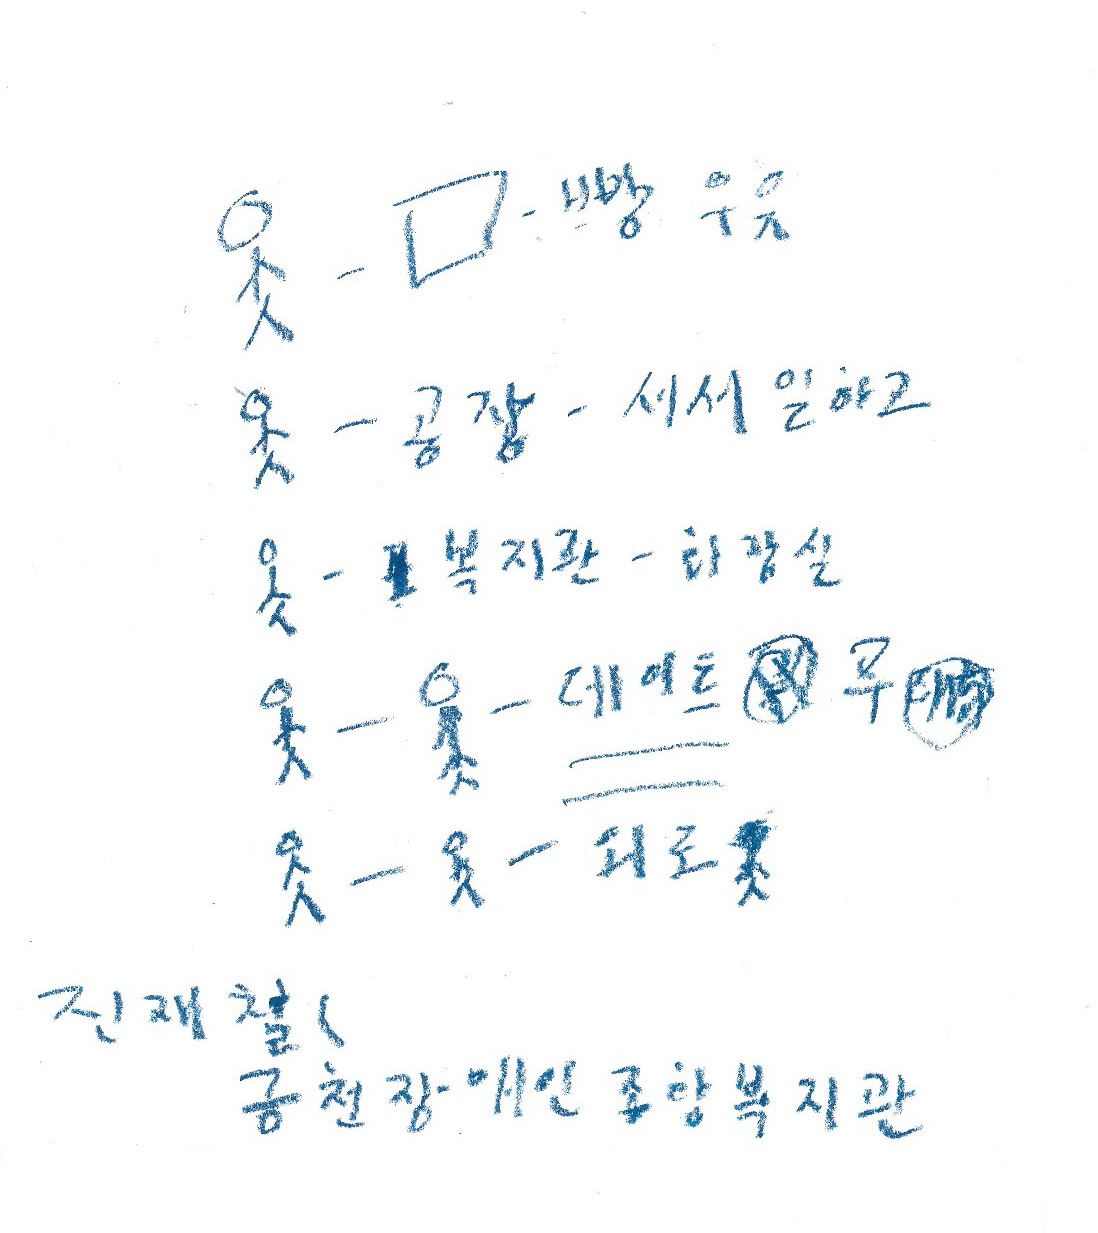 빵 우유
공장 - 서서 일하고
복지관 - 화장실
데이트
외로
진재철(
금천장애인종합복지관